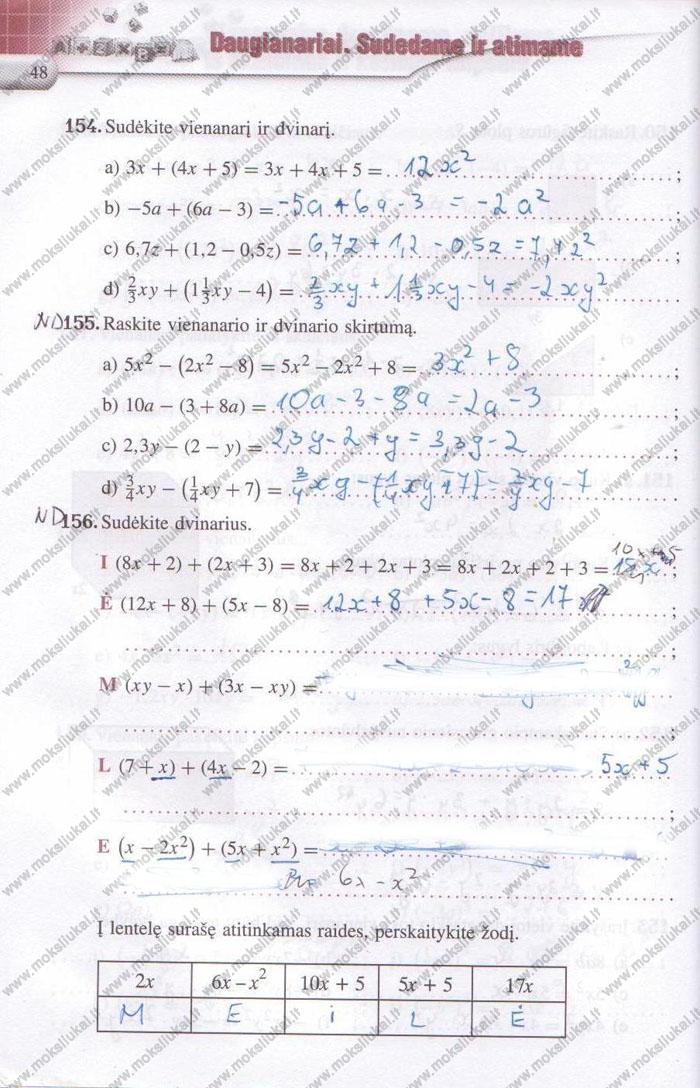 Daugianariai. Sudedame ir atimame
48
154. Sudėkite vienanarį ir dvinarį.
a) 3x + (4x + 5) = 3x + 4x + 5 = 12x² ;
b) −5a + (6a − 3) = −5a + 6a − 3 = −2a² ;
c) 6,7z + (1,2 − 0,5z) = 6,7z + 1,2 − 0,5z = 7,4z² ;
d) 2/3xy + (1 1/3xy − 4) = 2/3xy + 1 1/3xy − 4 = −2xy²
ND 155. Raskite vienanario ir dvinario skirtumą.
a) 5x² − (2x² − 8) = 5x² − 2x² + 8 = 3x² + 8 ;
b) 10a − (3 + 8a) = 10a − 3 − 8a = 2a − 3 ;
c) 2,3y − (2 − y) = 2,3y − 2 + y = 3,3y − 2 ;
d) 3/4xy − (1/4xy + 7) =
ND 156. Sudėkite dvinarius.
I (8x + 2) + (2x + 3) = 8x + 2 + 2x + 3 = 8x + 2x + 2 + 3 = ;
Ė (12x + 8) + (5x − 8) = 12x + 8 + 5x − 8 = 17 ;
M (xy − x) + (3x − xy) =
L (7 + x) + (4x − 2) = 5x + 5
E (x − 2x²) + (5x + x²) =
6x − x²
Į lentelę surašę atitinkamas raides, perskaitykite žodį.
2x 6x − x² 10x + 5 5x + 5 17x
M E i L Ė
www.moksliukai.lt